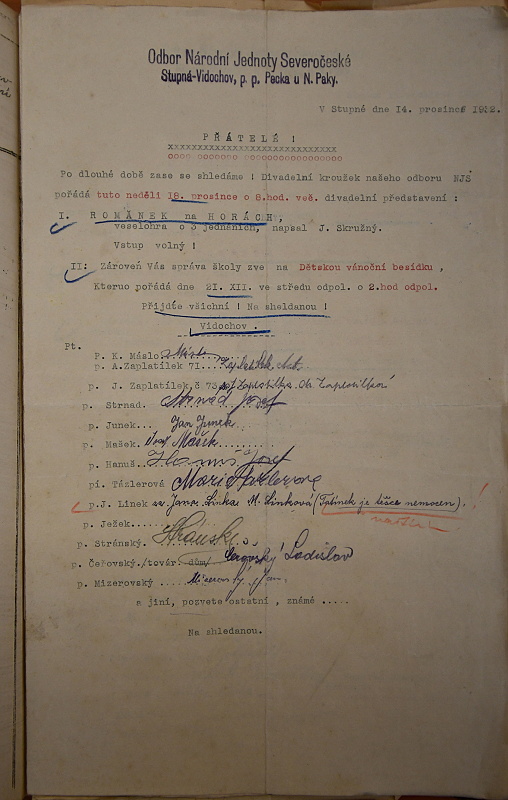 Odbor Národní Jednoty Severočeské
Stupná-Vidochov, p. p. Pecka u N. Paky.
V Stupné dne 14. prosince 1932.
PŘÁTELÉ !
xxxxxxxxxxxxxxxxxxxxxxxxxxxxx
oooo oooooooo ooo oooooooooooooooo
Po dlouhé době zase se shledáme ! Divadelní kroužek našeho odboru NJS
pořádá tuto neděli 18. prosince o 8.hod. več. divadelní představení :
I. ROMÁNEK na HORÁCH,
veselohra o 3 jednáních, napsal J. Skružný.
Vstup volný !
II: Zároveň Vás správa školy zve na Dětskou vánoční besídku ,
Kterou pořádá dne 21. XII. ve středu odpol. o 2.hod odpol.
Přijďte všichni ! Na sheldanou !
Vidochov .
Pt.
P. K. Máslo Máslo
p. A.Zaplatílek 71. Zaplatílek Ant.
p. J. Zaplatílek č 73
p. Strnad. Strnad Josef
p. Junek... Jan Junek
p. Mašek. Josef Mašek
p. Hanuš. Hanuš Josef
pí. Tázlerová Marie
p.J. Linek za Jana Linka M. Linková (Tatínek je těžce nemocen). !
p. Ježek.........
p. Stránský. Stránský
p. Čeřovský./továr. dům/ Čeřovský Ladislav
p. Mizerovský .... Mizerovský Jan
a jiní, pozvete ostatní , známé .....
Na shledanou.